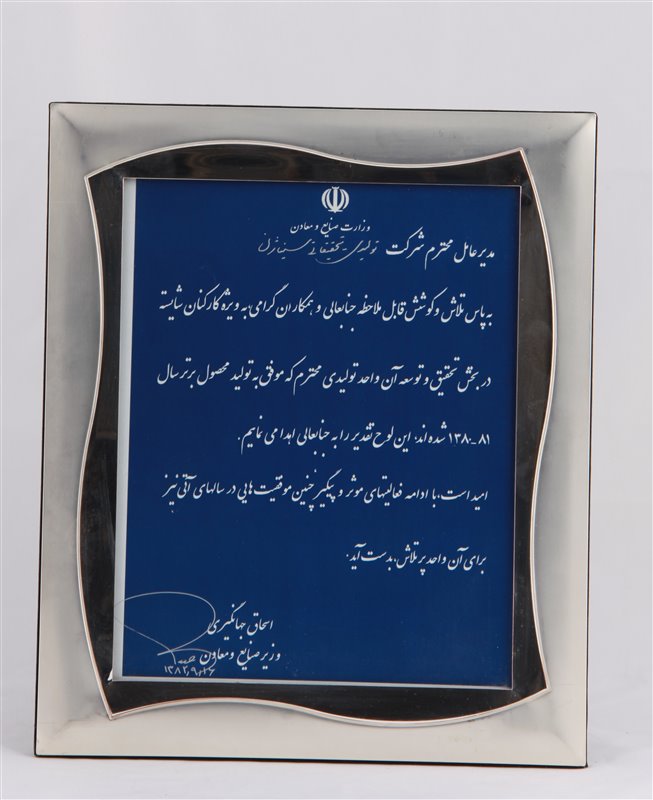 وزارت صنایع و معادن
مدیر عامل محترم شرکت تولیدی تحقیقاتی
به پاس تلاش و کوشش قابل ملاحظه جنابعالی و همکاران گرامی به ویژه کارکنان شایسته
در بخش تحقیق و توسعه آن واحد تولیدی محترم که موفق به تولید محصول برتر سال
۱۳۸۰-۸۱ شده اند، این لوح تقدیر را به جنابعالی اهدا می نمایم.
امید است، با ادامه فعالیتهای موثر و پیگیر چنین موفقیت هایی در سالهای آتی نیز
برای آن واحد پر تلاش، بدست آید.
اسحاق جهانگیری
وزیر صنایع و معادن
۱۳۸۲،۹،۲۶